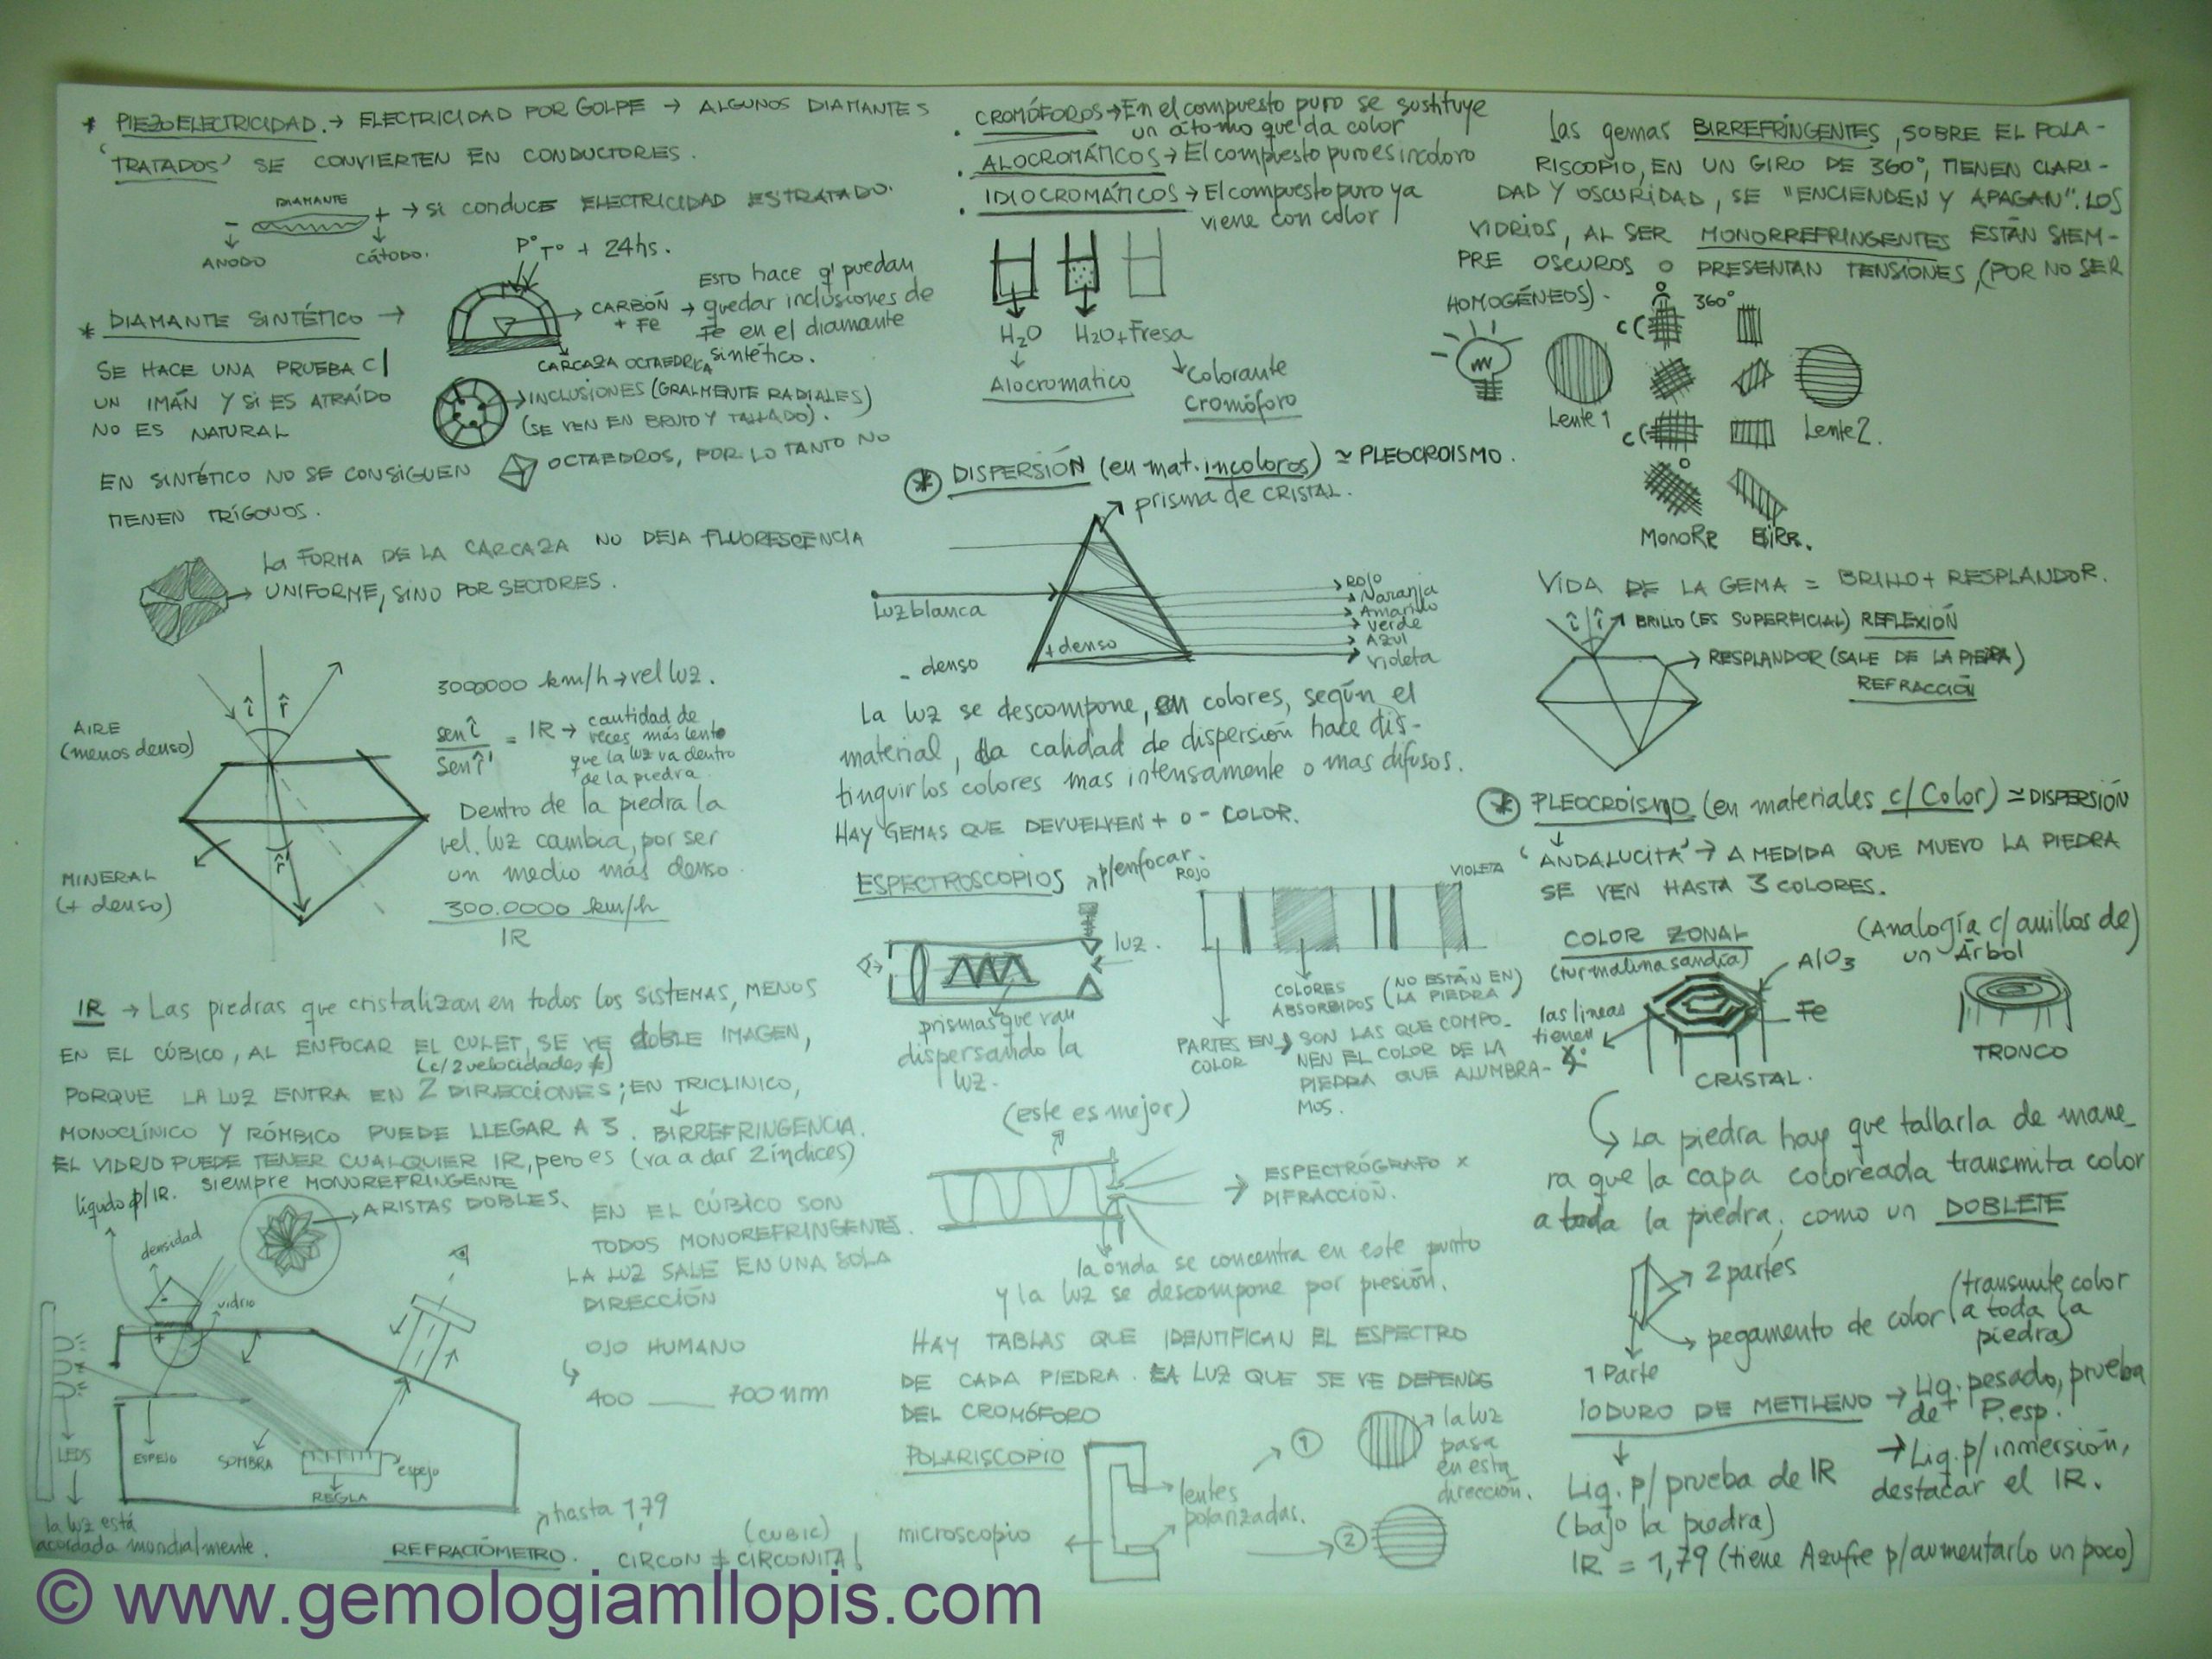 * PIEZOELECTRICIDAD. → ELECTRICIDAD POR GOLPE → ALGUNOS DIAMANTES
'TRATADOS' SE CONVIERTEN EN CONDUCTORES.
DIAMANTE
- + → si conduce ELECTRICIDAD ES TRATADO.
ANODO
CÁTODO.
P° T° + 24hs.
* DIAMANTE SINTÉTICO →
CARBÓN + Fe →
ESTO hace q' puedan
quedar inclusiones de
Fe en el diamante
sintético.
CARCAZA OCTAEDRICA
SE HACE UNA PRUEBA C/
UN IMÁN Y SI ES ATRAÍDO
NO ES NATURAL
INCLUSIONES (GRALMENTE RADIALES)
(SE VEN EN BRUTO Y TALLADO).
EN SINTÉTICO NO SE CONSIGUEN OCTAEDROS, POR LO TANTO NO
TIENEN TRÍGONOS.
LA FORMA DE LA CARCAZA NO DEJA FLUORESCENCIA
UNIFORME, SINO POR SECTORES.
AIRE
(menos denso)
î r̂
r̂'
MINERAL
(+ denso)
3000000 km/h → vel luz.
sen î
Sen r̂'
= IR → cantidad de
veces más lento
que la luz va dentro
de la piedra
Dentro de la piedra la
vel. luz cambia, por ser
un medio más denso
300.0000 km/h
IR
IR → Las piedras que cristalizan en todos los SISTEMAS, MENOS
EN EL CÚBICO, AL ENFOCAR EL CULET, SE VE DOBLE IMAGEN,
(c/ 2 velocidades ≠)
PORQUE LA LUZ ENTRA EN 2 DIRECCIONES; EN TRICLINICO,
MONOCLÍNICO Y RÓMBICO PUEDE LLEGAR A 3. BIRREFRINGENCIA.
EL VIDRIO PUEDE TENER CUALQUIER IR, pero es (va a dar 2 índices)
siempre MONOREFRINGENTE
líquido p/ IR.
ARISTAS DOBLES.
densidad
vidrio
EN EL CÚBICO SON
TODOS MONOREFRINGENTES.
LA LUZ SALE EN UNA SOLA
DIRECCIÓN
OJO HUMANO
400 ___ 700 nm
LEDS
ESPEJO
SOMBRA
REGLA
espejo
la luz está
acordada mundialmente.
REFRACTÓMETRO.
hasta 1,79
(CUBIC)
CIRCON ≠ CIRCONITA!
· CROMÓFOROS → En el compuesto puro se sustituye
un átomo que da color
· ALOCROMÁTICOS → El compuesto puro es incoloro
· IDIOCROMÁTICOS → El compuesto puro ya
viene con color
H2O
H2O + Fresa
Alocromatico
Colorante
Cromóforo
* DISPERSIÓN (en mat. incoloros) ≃ PLEOCROISMO.
prisma de CRISTAL.
Luz blanca
- denso
+ denso
ROJO
Naranja
Amarillo
Verde
Azul
Violeta
La luz se descompone, en colores, según el
material, la calidad de dispersión hace dis-
tinguir los colores mas intensamente o mas difusos.
HAY GEMAS QUE DEVUELVEN + O - COLOR.
ESPECTROSCOPIOS
p/enfocar.
luz.
prismas que van
dispersando la
luz.
ROJO
VIOLETA
COLORES
ABSORBIDOS
(NO ESTÁN EN
LA PIEDRA)
PARTES EN
COLOR
→ SON LAS QUE COMPO-
NEN EL COLOR DE LA
PIEDRA QUE ALUMBRA-
MOS.
(este es mejor)
→ ESPECTRÓGRAFO X
DIFRACCIÓN.
la onda se concentra en este punto
y la luz se descompone por presión.
HAY TABLAS QUE IDENTIFICAN EL ESPECTRO
DE CADA PIEDRA. LA LUZ QUE SE VE DEPENDE
DEL CROMÓFORO
POLARISCOPIO
microscopio
lentes
polarizadas.
1
la luz
pasa
en esta
dirección.
2
las gemas BIRREFRINGENTES, SOBRE EL POLA-
RISCOPIO, EN UN GIRO DE 360°, TIENEN CLARI-
DAD Y OSCURIDAD, SE "ENCIENDEN Y APAGAN". LOS
VIDRIOS, AL SER MONORREFRINGENTES ESTÁN SIEM-
PRE OSCUROS O PRESENTAN TENSIONES, (POR NO SER
HOMOGÉNEOS).
360°
Lente 1
Lente 2.
MonoRR
BIRR.
VIDA DE LA GEMA = BRILLO + RESPLANDOR.
î r̂
BRILLO (ES SUPERFICIAL) REFLEXIÓN
RESPLANDOR (SALE DE LA PIEDRA)
REFRACCIÓN
* PLEOCROISMO (en materiales c/ Color) ≃ DISPERSIÓN
'ANDALUCITA' → A MEDIDA QUE MUEVO LA PIEDRA
SE VEN HASTA 3 COLORES.
COLOR ZONAL
(turmalina sandía)
(Analogía c/ anillos de
un Árbol)
AlO3
Fe
las lineas
tienen
CRISTAL.
TRONCO
La piedra hay que tallarla de mane-
ra que la capa coloreada transmita color
a toda la piedra, como un DOBLETE
2 partes
pegamento de color (transmite color
a toda la
piedra)
1 Parte
IODURO DE METILENO → Liq. pesado, prueba
de P. esp.
→ Liq. p/ inmersión,
destacar el IR.
Liq. p/ prueba de IR
(bajo la piedra)
IR = 1,79 (tiene Azufre p/ aumentarlo un poco)
© www.gemologiamllopis.com